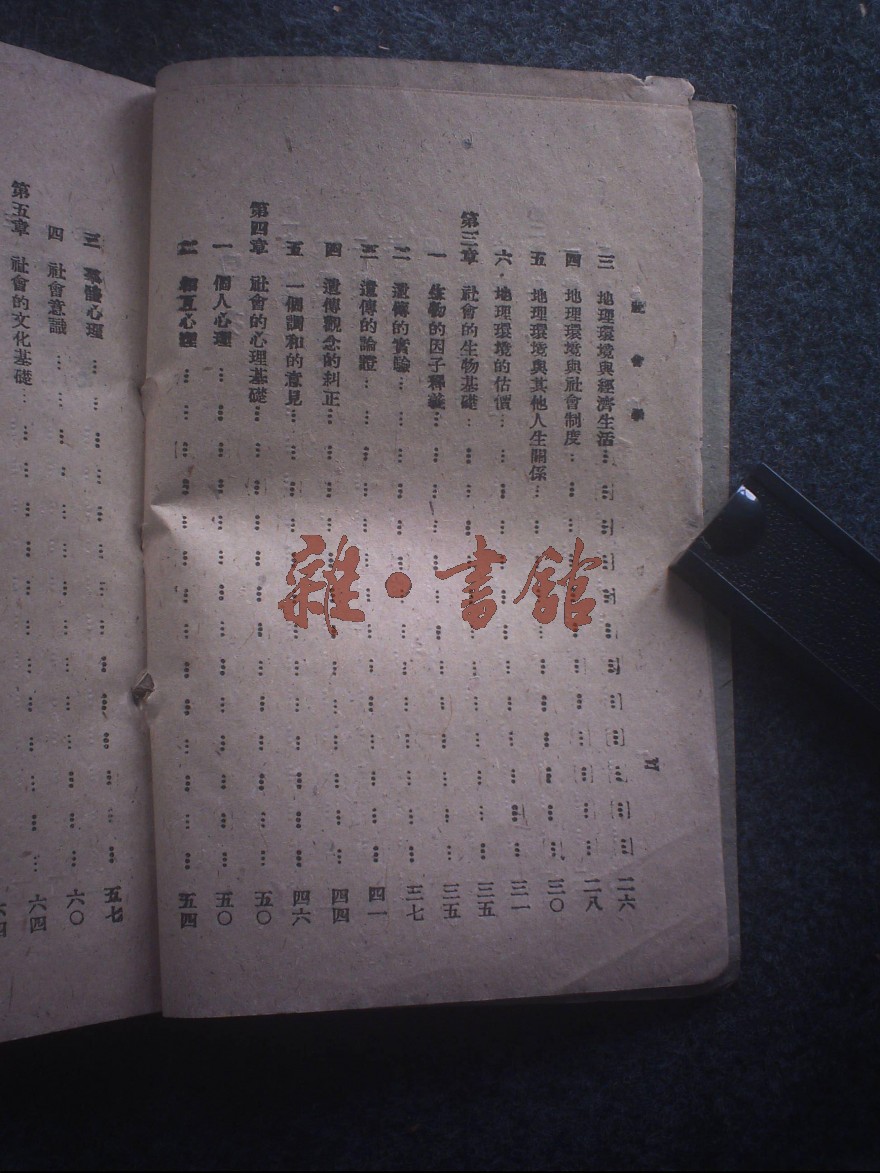 社會學
三 地理環境與經濟生活 二六
四 地理環境與社會制度 二八
五 地理環境與其他人生關係 三〇
六 地理環境的估價 三一
第三章 社會的生物基礎 三五
一 生物的因子釋義 三五
二 遺傳的實驗 三七
三 遺傳的論證 四一
四 遺傳觀念的糾正 四四
五 一個調和的意見 四六
第四章 社會的心理基礎 五〇
一 個人心理 五〇
二 相互心理 五四
三 羣體心理 五七
四 社會意識 六〇
第五章 社會的文化基礎 六四
雜·書館